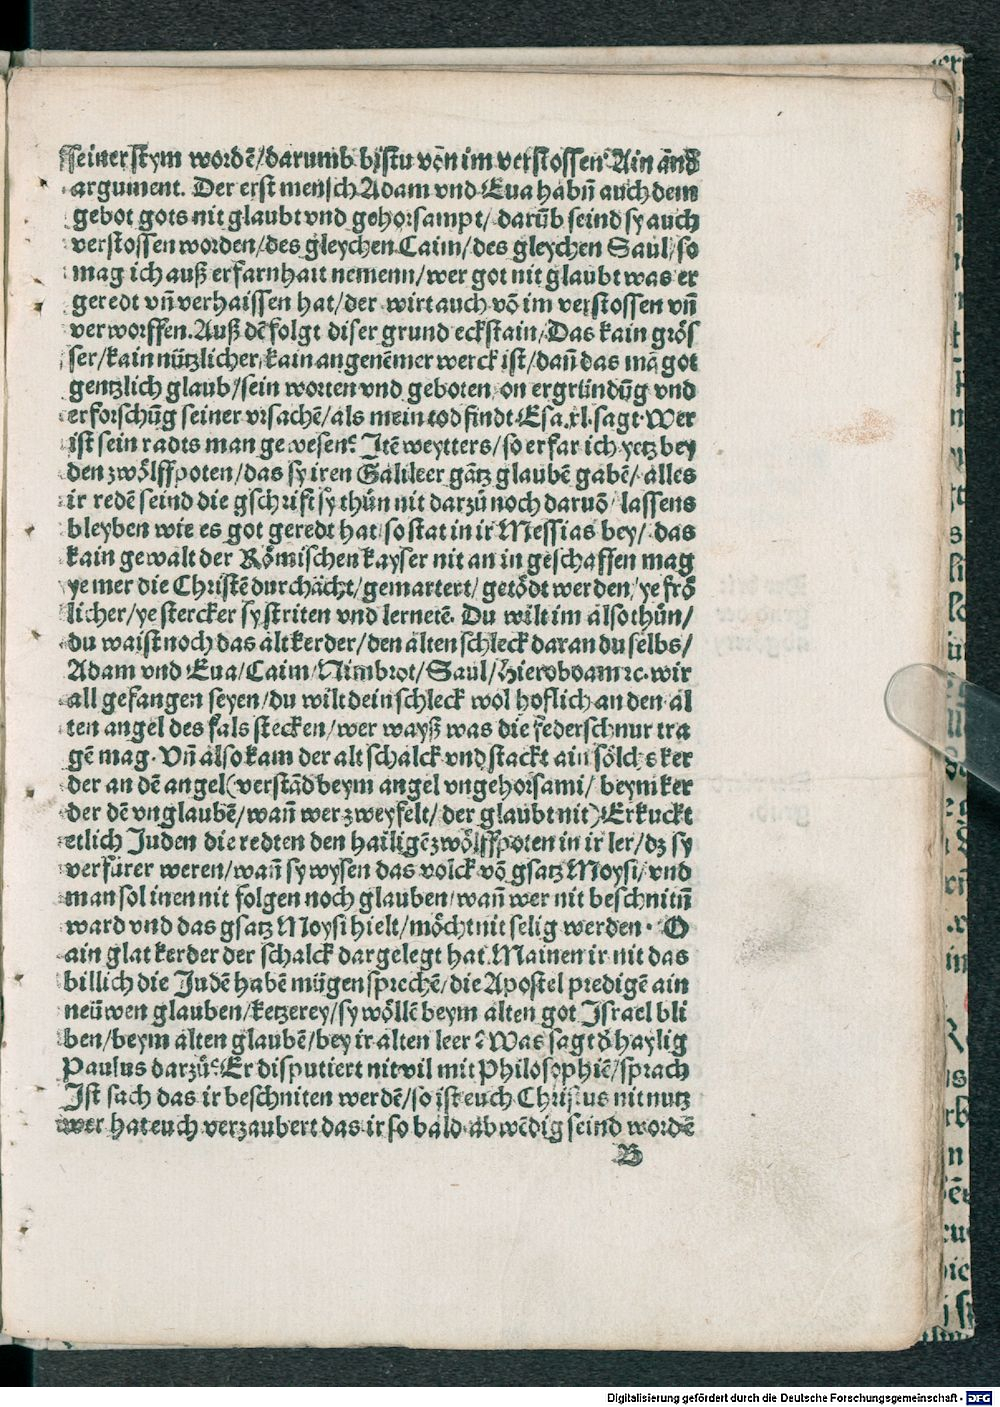 seiner stym wordẽ/darumb bistu von im verstossen Ain and̃
argument. Der erst mensch Adam vnd Eua habñ auch dem
gebot gots nit glaubt vnd gehorsampt/ darũb seind sy auch
verstossen worden/des gleychen Caim/des gleychen Saul/so
mag ich auß erfarnhait nemenn/wer got nit glaubt was er
geredt vñ verhaissen hat/der wirt auch võ im verstossen vñ
verworffen. Auß dẽ folgt diser grund eckstain/Das kain grös
ser/kain nützlicher/kain angenẽmer werck ist/dañ das mã got
gentzlich glaub/sein worten vnd geboten/on ergründũg vnd
erforschũg seiner vrsachẽ/als mein tod findt Esa.xl.sagt Wer
ist sein radts man gewesen? Itẽ weytters/so erfar ich yetz bey
den zwölffpoten/das sy iren Galileer gãtz glaubẽ gabẽ/ alles
ir redẽ seind die gschrift sy thůn nit darzů noch daruõ/ lassens
bleyben wie es got geredt hat/so stat in ir Messias bey/ das
kain gewalt der Römischen kayser nit an in geschaffen mag
ye mer die Christẽ durchächt/gemartert/getödt werden/ye frö
licher/ye stercker sy striten vnd lerneten. Du wilt im also thůn/
du waist noch das alt kerder/den alten schleck daran du selbs/
Adam vnd Eua/Caim/Nimbrot/Saul/Hieroboam ꝛc. wir
all gefangen seyen/du wilt dein schleck wol hoflich an den al
ten angel des fals stecken/wer wayß was die federschnur tra
gẽ mag. Vñ also kam der alt schalck vnd stackt ain sölchs ker
der an dẽ angel(verstãd beym angel vngehorsami/ beym ker
der dẽ vnglaubẽ/wañ wer zweyfelt/der glaubt nit) Erkuckt
etlich Juden die redten den hailigẽ zwölffpoten in ir ler/dz sy
verfürer weren/wañ sy wysen das volck võ gsatz Moysi/vnd
man sol inen nit folgen noch glauben/wañ wer nit beschnitñ
ward vnd das gsatz Moysi hielt/möcht nit selig werden. O
ain glat kerder der schalck dargelegt hat. Mainen ir nit das
billich die Judẽ habẽ mügen sprechẽ/die Apostel predigẽ ain
neüwen glauben/ketzerey/sy wöllẽ beym alten got Israel bli
ben/beym alten glaubẽ/bey ir alten leer? Was sagt d̃ haylig
Paulus darzů? Er disputiert nit vil mit Philosophiẽ/sprach
Ist sach das ir beschniten werdẽ/so ist euch Christus nit nutz
wer hat euch verzaubert das ir so bald abwẽdig seind wordẽ
B
Digitalisierung gefördert durch die Deutsche Forschungsgemeinschaft - DFG